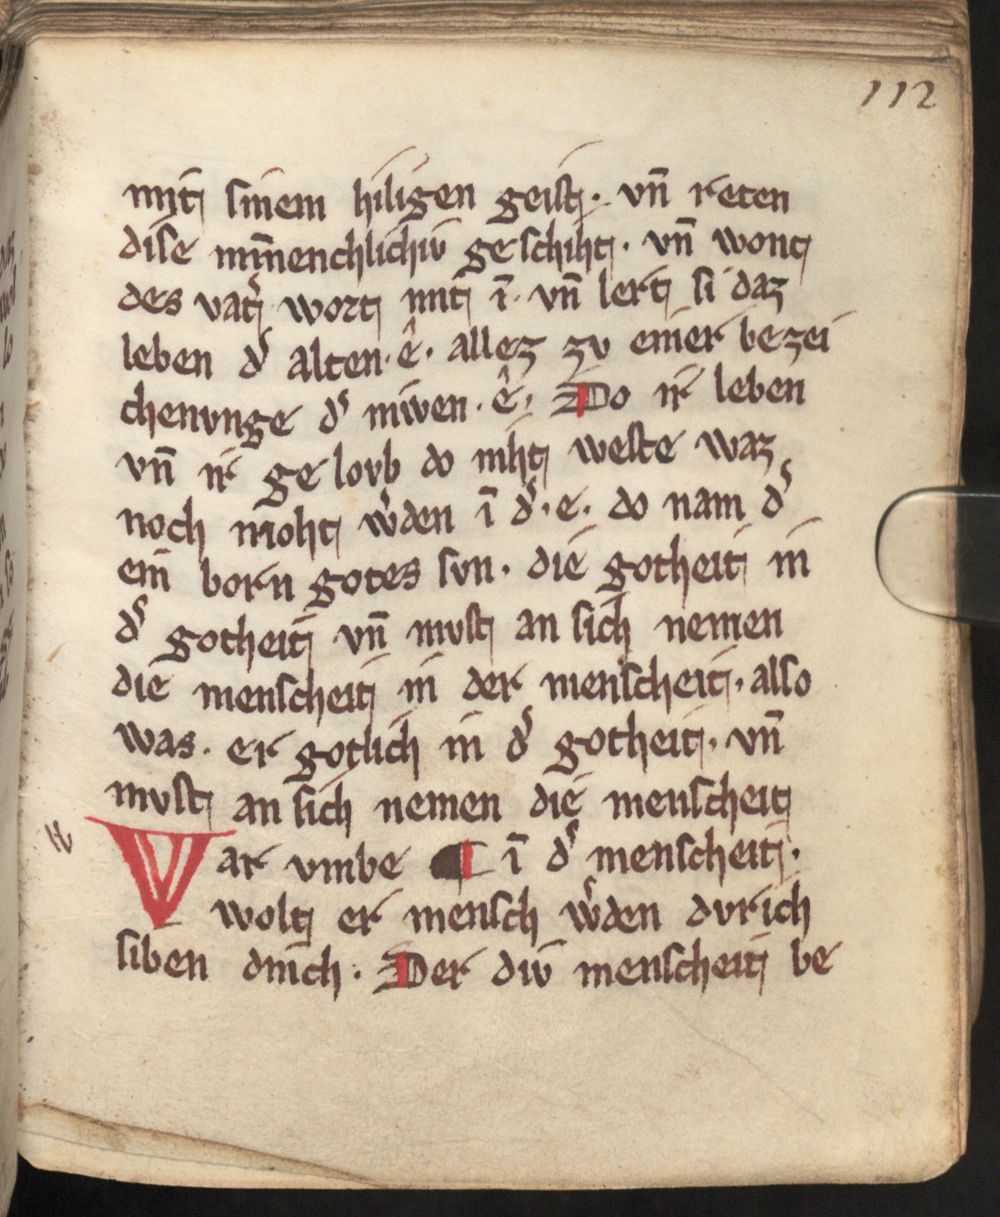 112
mit sinem hiligen geist. vn̄ reten
dise mīnenchlichiv geschiht. vn̄ wont
des vat͛ wort mit ī. vn̄ lert si daz
leben d͛ alten. ê. allez zv einer bezei
chenvnge d͛ niwen. ê. Do ir leben
vn̄ ir ge lovb do niht weste waz
noch moht w͛den ī d͛. e. do nam d͛
ein born gotes svn. die gotheit in
d͛ gotheit vn̄ mvst an sich nemen
die menscheit in der menscheit. also
was. er gotlich in d͛ gotheit. vn̄
mvst an sich nemen die menscheit
War vmbe ¶ ī d͛ menscheit.
wolt er mensch w͛den dvrich
siben dinch. Der div menscheit be